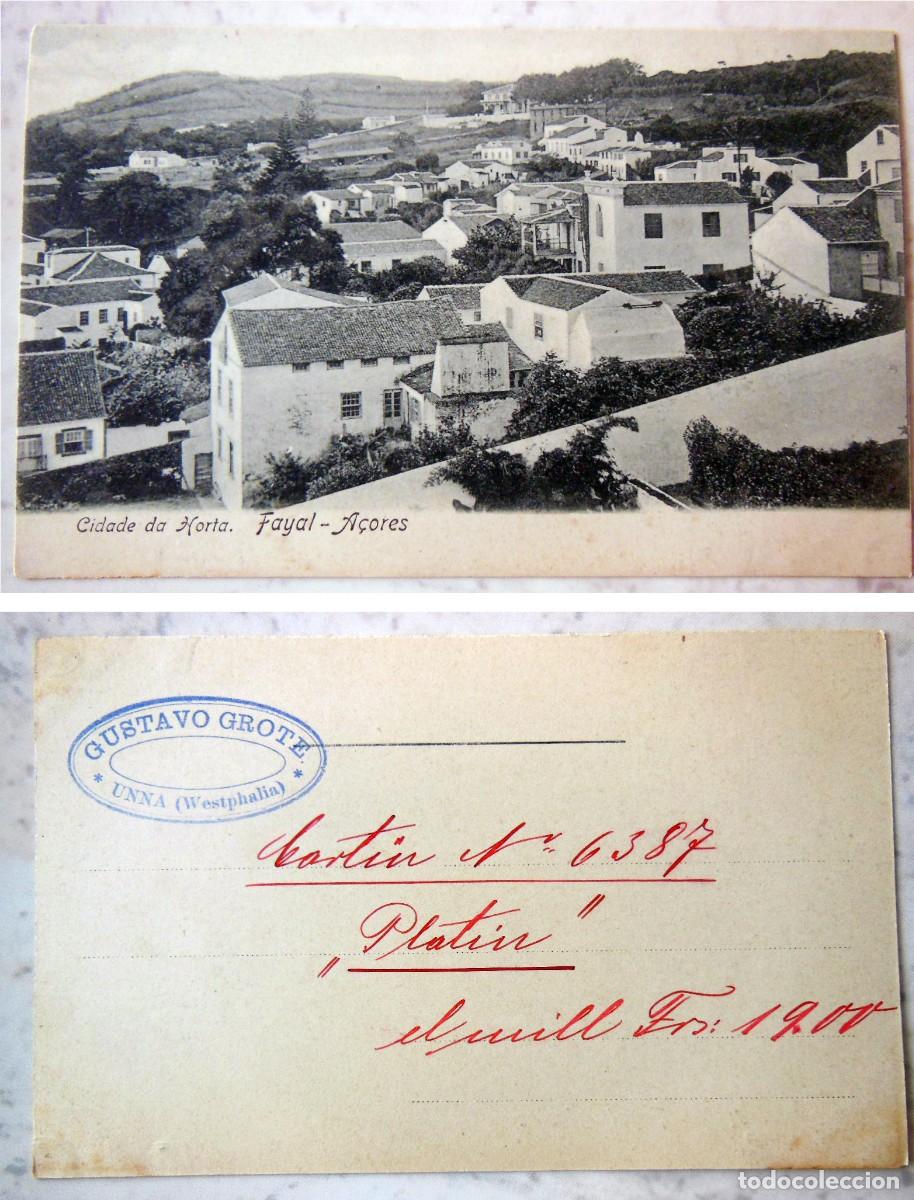 Cidade da Horta. Fayal - Açores
GUSTAVO GROTE.
* UNNA (Westphalia) *
Cartin Nr. 6387
"Platin"
el mill Frs: 19.00
todocoleccion